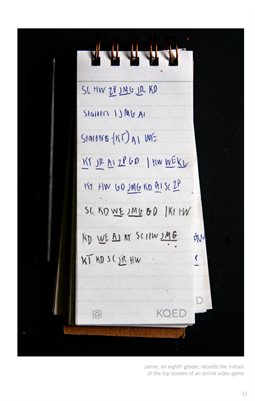 SC HW ZP JMG JR KD
Stainers | JMG AI
Stainers (KT) AI WE
KT JR AI ZP GD | HW WE KD
KT HW GD JMG KD AI SC ZP
SC KD WE JMG GD | KT HW
KD WE AI KT SC HW JMG
KT KD SC JR HW
KQED
D
Jamie, an eighth grader, records the initials
of the top scorers of an online video game
13